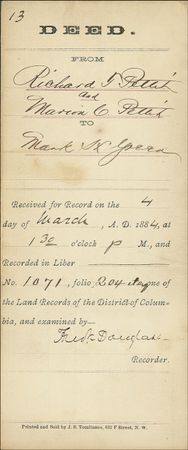 13
DEED.
FROM
Richard T. Pettit
and
Marion C. Pettit
TO
Mark K.
Received for Record on the 4
day of March, A. D. 1884, at
1 30 o'clock P M., and
Recorded in Liber
No. 1071, folio 204 et seq of
the Land Records of the District of Colum-
bia, and examined by
Fredk Douglass
Recorder.
Printed and Sold by J. S. Tomlinson, 632 F Street, N. W.